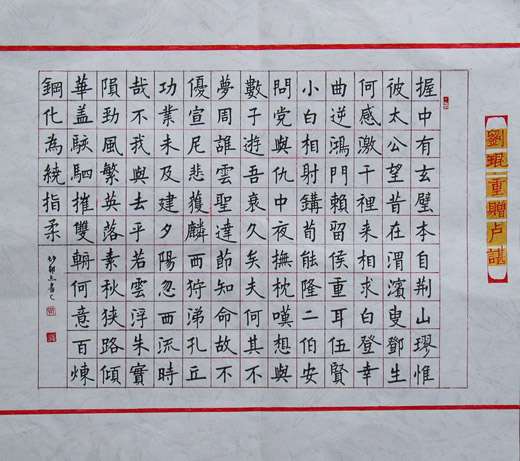 劉琨·重贈卢諶
握中有玄璧本自荆山璆惟
彼太公望昔在渭濱叟鄧生
何感激千裡来相求白登幸
曲逆鴻門賴留侯重耳伍賢
小白相射鉤苟能隆二伯安
問党與仇中夜撫枕嘆想與
數子遊吾衰久矣夫何其不
夢周誰雲聖達節知命故不
優宣尼悲獲麟西狩涕孔丘
功業未及建夕陽忽西流時
哉不我與去乎若雲浮朱實
隕劲風繁英落素秋狭路傾
華盖駭駟摧雙輈何意百煉
鋼化為繞指柔